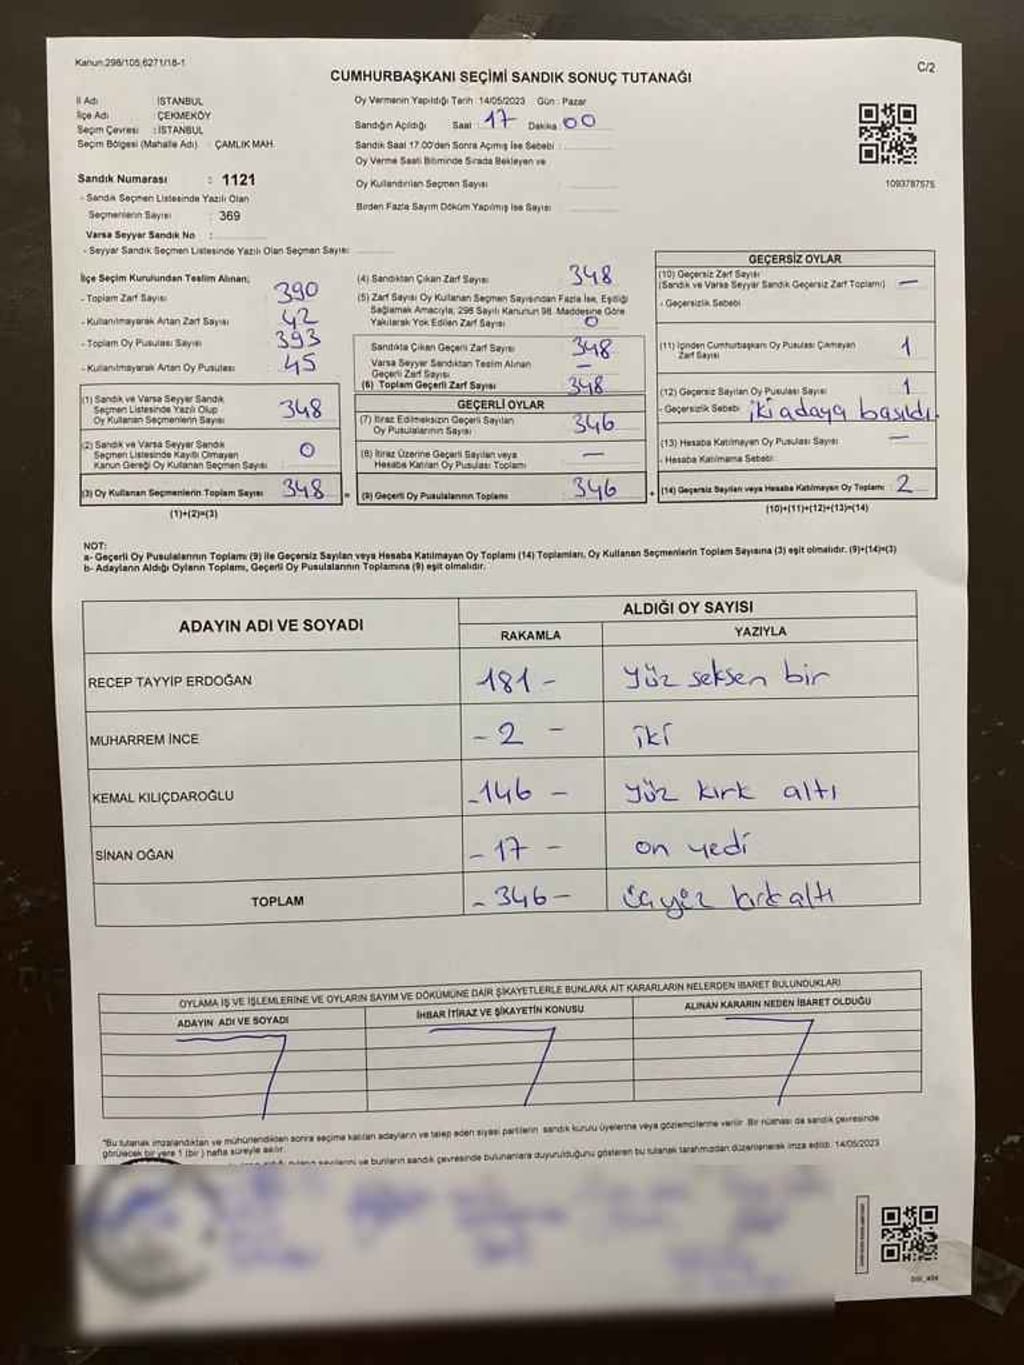 Kanun:298/105,6271/18-1
C/2
CUMHURBAŞKANI SEÇİMİ SANDIK SONUÇ TUTANAĞI
İl Adı : İSTANBUL
İlçe Adı : ÇEKMEKÖY
Seçim Çevresi : İSTANBUL
Seçim Bölgesi (Mahalle Adı) : ÇAMLIK MAH.
Oy Vermenin Yapıldığı Tarih : 14/05/2023 Gün : Pazar
Sandığın Açıldığı Saat : 17 Dakika : 00
Sandık Saat 17.00'den Sonra Açmış İse Sebebi :
Oy Verme Saati Bitiminde Sırada Bekleyen ve
Oy Kullandırılan Seçmen Sayısı
Birden Fazla Sayım Döküm Yapılmış İse Sayısı
1093787575
Sandık Numarası : 1121
- Sandık Seçmen Listesinde Yazılı Olan
Seçmenlerin Sayısı : 369
Varsa Seyyar Sandık No :
- Seyyar Sandık Seçmen Listesinde Yazılı Olan Seçmen Sayısı:
İlçe Seçim Kurulundan Teslim Alınan;
- Toplam Zarf Sayısı 390
- Kullanılmayarak Artan Zarf Sayısı 42
- Toplam Oy Pusulası Sayısı 393
- Kullanılmayarak Artan Oy Pusulası 45
(1) Sandık ve Varsa Seyyar Sandık
Seçmen Listesinde Yazılı Olup
Oy Kullanan Seçmenlerin Sayısı 348
(2) Sandık ve Varsa Seyyar Sandık
Seçmen Listesinde Kayıtlı Olmayan
Kanun Gereği Oy Kullanan Seçmen Sayısı 0
(3) Oy Kullanan Seçmenlerin Toplam Sayısı 348 =
(1)+(2)=(3)
(4) Sandıktan Çıkan Zarf Sayısı 348
(5) Zarf Sayısı Oy Kullanan Seçmen Sayısından Fazla İse, Eşitliği
Sağlamak Amacıyla, 298 Sayılı Kanunun 98. Maddesine Göre
Yakılarak Yok Edilen Zarf Sayısı 0
Sandıkta Çıkan Geçerli Zarf Sayısı 348
Varsa Seyyar Sandıktan Teslim Alınan
Geçerli Zarf Sayısı —
(6) Toplam Geçerli Zarf Sayısı 348
GEÇERLİ OYLAR
(7) İtiraz Edilmeksizin Geçerli Sayılan
Oy Pusulalarının Sayısı 346
(8) İtiraz Üzerine Geçerli Sayılan veya
Hesaba Katılan Oy Pusulası Toplamı —
(9) Geçerli Oy Pusulalarının Toplamı 346 +
GEÇERSİZ OYLAR
(10) Geçersiz Zarf Sayısı
(Sandık ve Varsa Seyyar Sandık Geçersiz Zarf Toplamı) —
- Geçersizlik Sebebi
(11) İçinden Cumhurbaşkanı Oy Pusulası Çıkmayan
Zarf Sayısı 1
(12) Geçersiz Sayılan Oy Pusulası Sayısı 1
- Geçersizlik Sebebi : iki adaya basıldı.
(13) Hesaba Katılmayan Oy Pusulası Sayısı —
- Hesaba Katılmama Sebebi:
(14) Geçersiz Sayılan veya Hesaba Katılmayan Oy Toplamı : 2
(10)+(11)+(12)+(13)=(14)
NOT:
a- Geçerli Oy Pusulalarının Toplamı (9) ile Geçersiz Sayılan veya Hesaba Katılmayan Oy Toplamı (14) Toplamları, Oy Kullanan Seçmenlerin Toplam Sayısına (3) eşit olmalıdır. (9)+(14)=(3)
b- Adayların Aldığı Oyların Toplamı, Geçerli Oy Pusulalarının Toplamına (9) eşit olmalıdır.
ADAYIN ADI VE SOYADI
ALDIĞI OY SAYISI
RAKAMLA YAZIYLA
RECEP TAYYİP ERDOĞAN -181- Yüz seksen bir
MUHARREM İNCE -2- iki
KEMAL KILIÇDAROĞLU -146- Yüz kırk altı
SİNAN OĞAN -17- on yedi
TOPLAM -346- üçyüz kırk altı
OYLAMA İŞ VE İŞLEMLERİNE VE OYLARIN SAYIM VE DÖKÜMÜNE DAİR ŞİKAYETLERLE BUNLARA AİT KARARLARIN NELERDEN İBARET BULUNDUKLARI
ADAYIN ADI VE SOYADI İHBAR İTİRAZ VE ŞİKAYETİN KONUSU ALINAN KARARIN NEDEN İBARET OLDUĞU
"Bu tutanak imzalandıktan ve mühürlendikten sonra seçime katılan adayların ve talep eden siyasi partilerin sandık kurulu üyelerine veya gözlemcilerine verilir. Bir nüshası da sandık çevresinde
görülecek bir yere 1 (bir) hafta süreyle asılır.
sayılarını ve bunların sandık çevresinde bulunanlara duyurulduğunu gösteren bu tutanak tarafımızdan düzenlenerek imza edildi. 14/05/2023